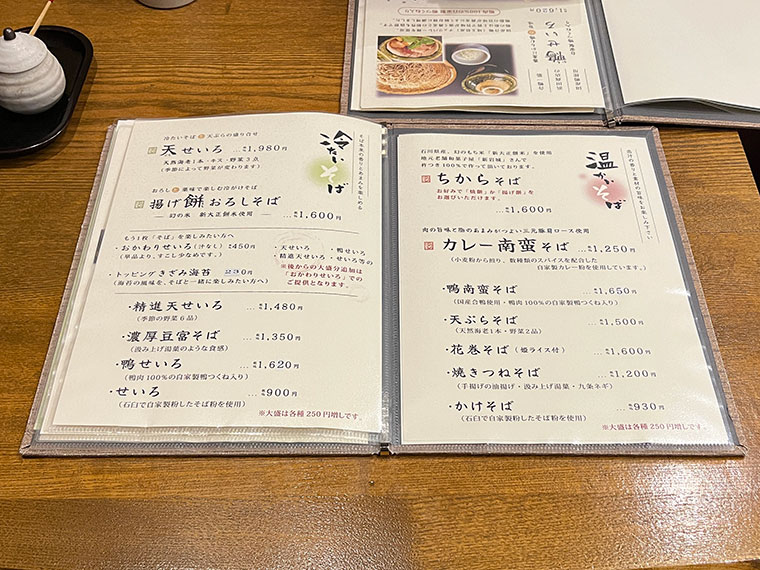 冷たいそば
そば本来の香りとあまみを楽しめる
冷たいそばと天ぷらの盛り合せ
天せいろ …税込1,980円
天然海老1本・キス・野菜3点
(季節によって野菜が変わります)
おろしと薬味で楽しむ冷がけそば
揚げ餅おろしそば …税込1,600円
― 幻の米 新大正餅米使用 ―
もう1枚「そば」を楽しみたい方へ
・おかわりせいろ(汁なし) 税込450円
(単品より、すこし少なめです。)
・天せいろ ・鴨せいろ
・精進天せいろ ・せいろ等の
※後からの大盛分追加は
「おかわりせいろ」での
ご提供となります。
・トッピングきざみ海苔 230円
(海苔の風味を、そばと一緒に楽しみたい方へ)
・精進天せいろ …税込1,480円
(季節の野菜6品)
・濃厚豆富そば …税込1,350円
(汲み上げ湯葉のような食感)
・鴨せいろ …税込1,620円
(鴨肉100%の自家製鴨つくね入り)
・せいろ …税込900円
(石臼で自家製粉したそば粉を使用)
※大盛は各種250円増しです。
温かいそば
石川県産、幻のもち米「新大正餅米」を使用
地元老舗和菓子屋「新岩城」さんで
杵つき100%で作って頂いております。
ちからそば
お好みで「焼餅」か「揚げ餅」を
お選びいただけます。
…税込1,600円
肉の旨味と脂のあまみがつよい三元豚肩ロース使用
カレー南蛮そば …税込1,250円
(小麦粉から煎り、数種類のスパイスを配合した
自家製カレー粉を使用しています。)
・鴨南蛮そば …税込1,650円
(国産合鴨使用・鴨肉100%の自家製鴨つくね入り)
・天ぷらそば …税込1,500円
(天然海老1本・野菜2品)
・花巻そば(姫ライス付) …税込1,600円
・焼きつねそば …税込1,200円
(手揚げの油揚げ・汲み上げ湯葉・九条ネギ)
・かけそば …税込930円
(石臼で自家製粉したそば粉を使用)
※大盛は各種250円増しです。
鴨せいろ
税込1,620円